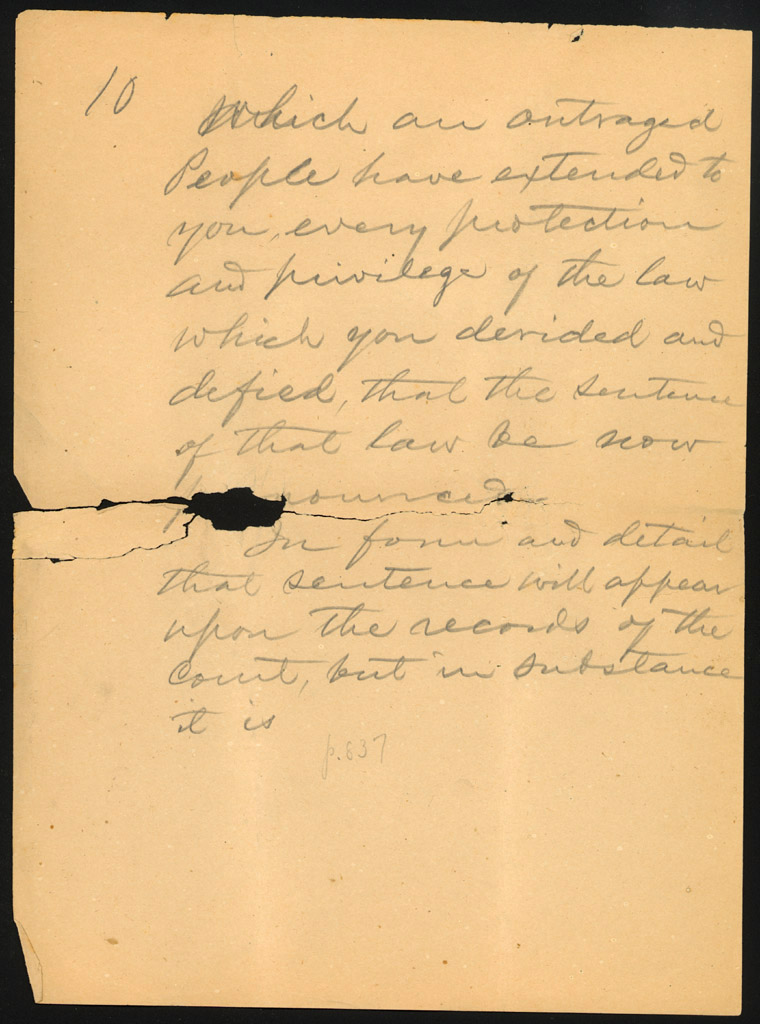 10
Which an outraged
People have extended to
you, every protection
and privilege of the law
which you derided and
defied, that the sentence
of that law be now
nounced.
In form and detail
that sentence will appear
upon the records of the
court, but in substance
it is
p. 637